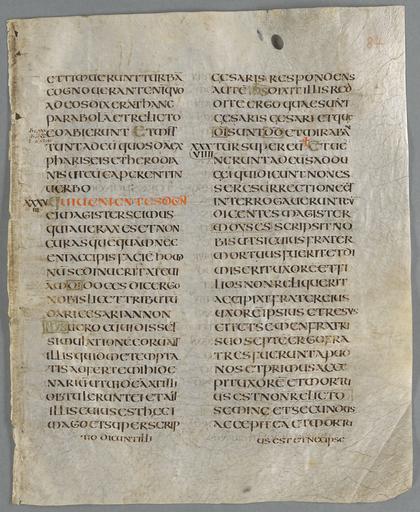 ETTIMUERUNTTURBĀ
COGNOUERANTENIQUO
ADEOSDIXERATHANC
PARABOLĀETRELICTO
EOABIERUNT ETMIT
TUNTADEŪQUOSDĀEX
PHARISEISETHERODIA
NISUTEŪCAPERENTIN
UERBO
XXXV QUIUENIENTESDICN
EIMAGISTERSCIMUS
QUIAUERAXESETNON
CURASQUEQUAMNEC
ENIACCIPISFACIĒHOM
NŪSEDINUERITATEUI
ĀDĪDOCESDICERGO
NOBISLICETTRIBUTŪ
DARICESARIANNON
UERO
SIMULATIONĒ AIT
ILLISQUIDMETEMPTA
TISADFERTEMIHIDE
NARIŪUTUIDEĀATILLI
OBTULERUNTETAIT
ILLISCUIUSESTHECI
MAGOETSUPERSCRIP
TIODICUNTILLI
84
CESARIS RESPONDENS
AUTĒIHSDIXITILLISRED
DITEERGOQUAESUNT
CESARISCESARIETQUE
DĪSUNTDŌETMIRABĀ
XXX VIIII TURSUPEREŪ ETUE
NERUNTADEŪSADDU
CEIQUIDICUNTNONES
SERESURRECTIONĒET
INTERROGAUERUNTEŪ
DICENTESMAGISTER
MOYSESSCRIPSITNO
BISUTSICUIUSFRATER
MORTUUSFUERITETDI
MISERITUXORĒETFI
LIOSNONRELIQUERIT
ACCIPIATFRATEREIUS
UXORĒIPSIUSETRESUS
CITETSEMENFRATRI
SUOSEPTĒERGOFRA
TRESFUERUNTAPUD
NOSETPRIMUSACCE
PITUXORĒETMORTU
USESTNONRELICTO
SEMINEETSECUNDUS
ACCEPITEĀETMORTU
USESTETNECIPSE